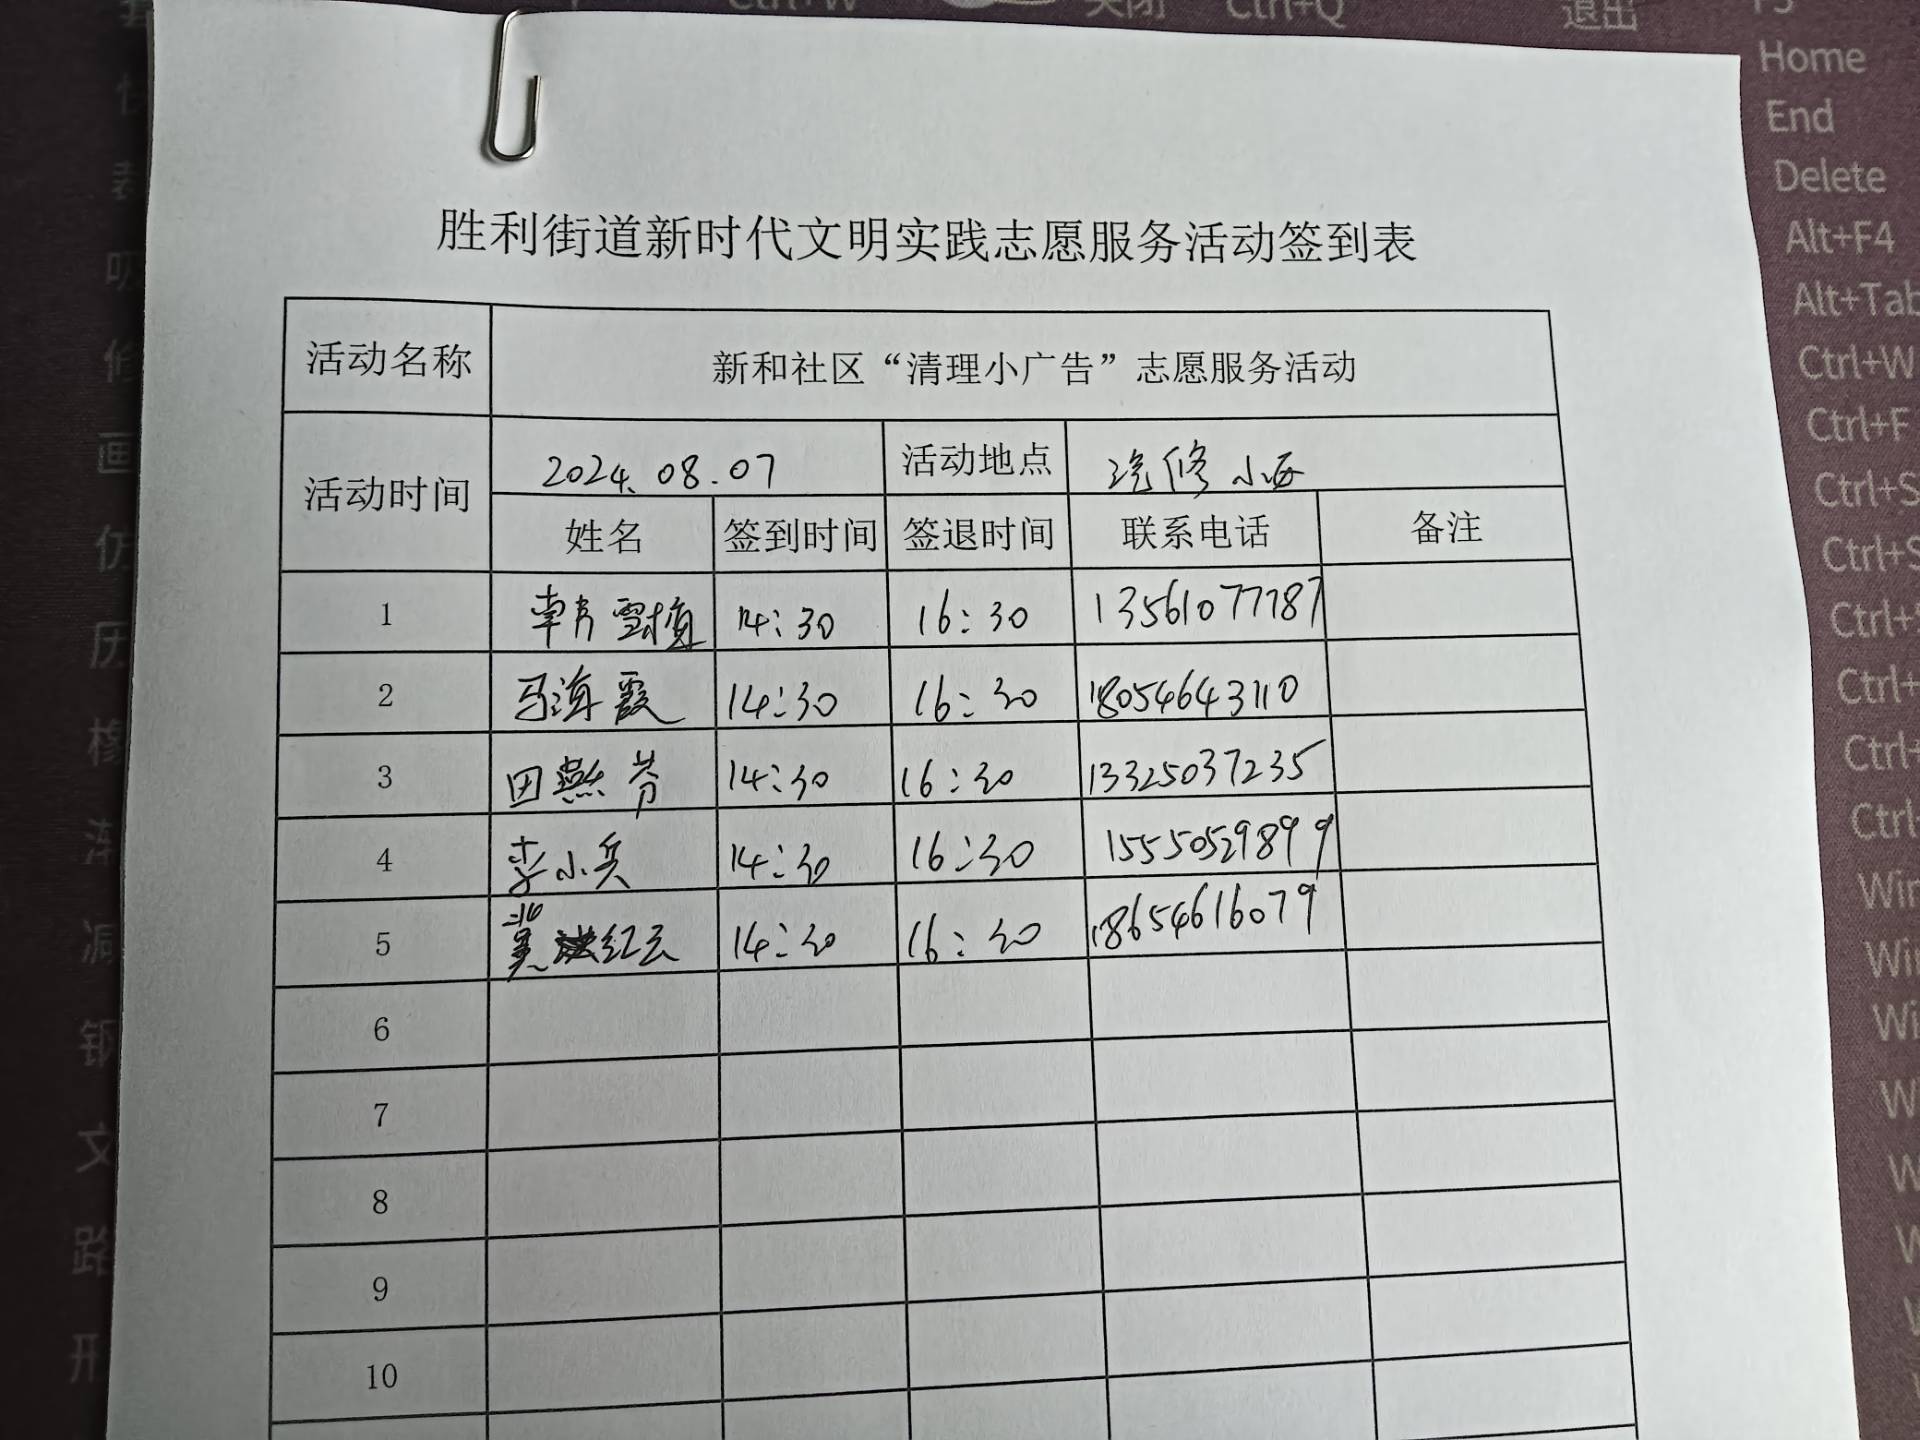 关闭 Ctrl+Q
退出
Home
End
Delete
Alt+F4
Alt+Tab
Ctrl+W
Ctrl+F
胜利街道新时代文明实践志愿服务活动签到表
活动名称 新和社区“清理小广告”志愿服务活动
活动时间 2024.08.07 活动地点 汽修小区
姓名 签到时间 签退时间 联系电话 备注
1 韩雪梅 14:30 16:30 13561077787
2 马海霞 14:30 16:30 18054643110
3 田燕芬 14:30 16:30 13325037235
4 李小兵 14:30 16:30 15550529899
5 冀红云 14:30 16:30 18654616079
6
7
8
9
10